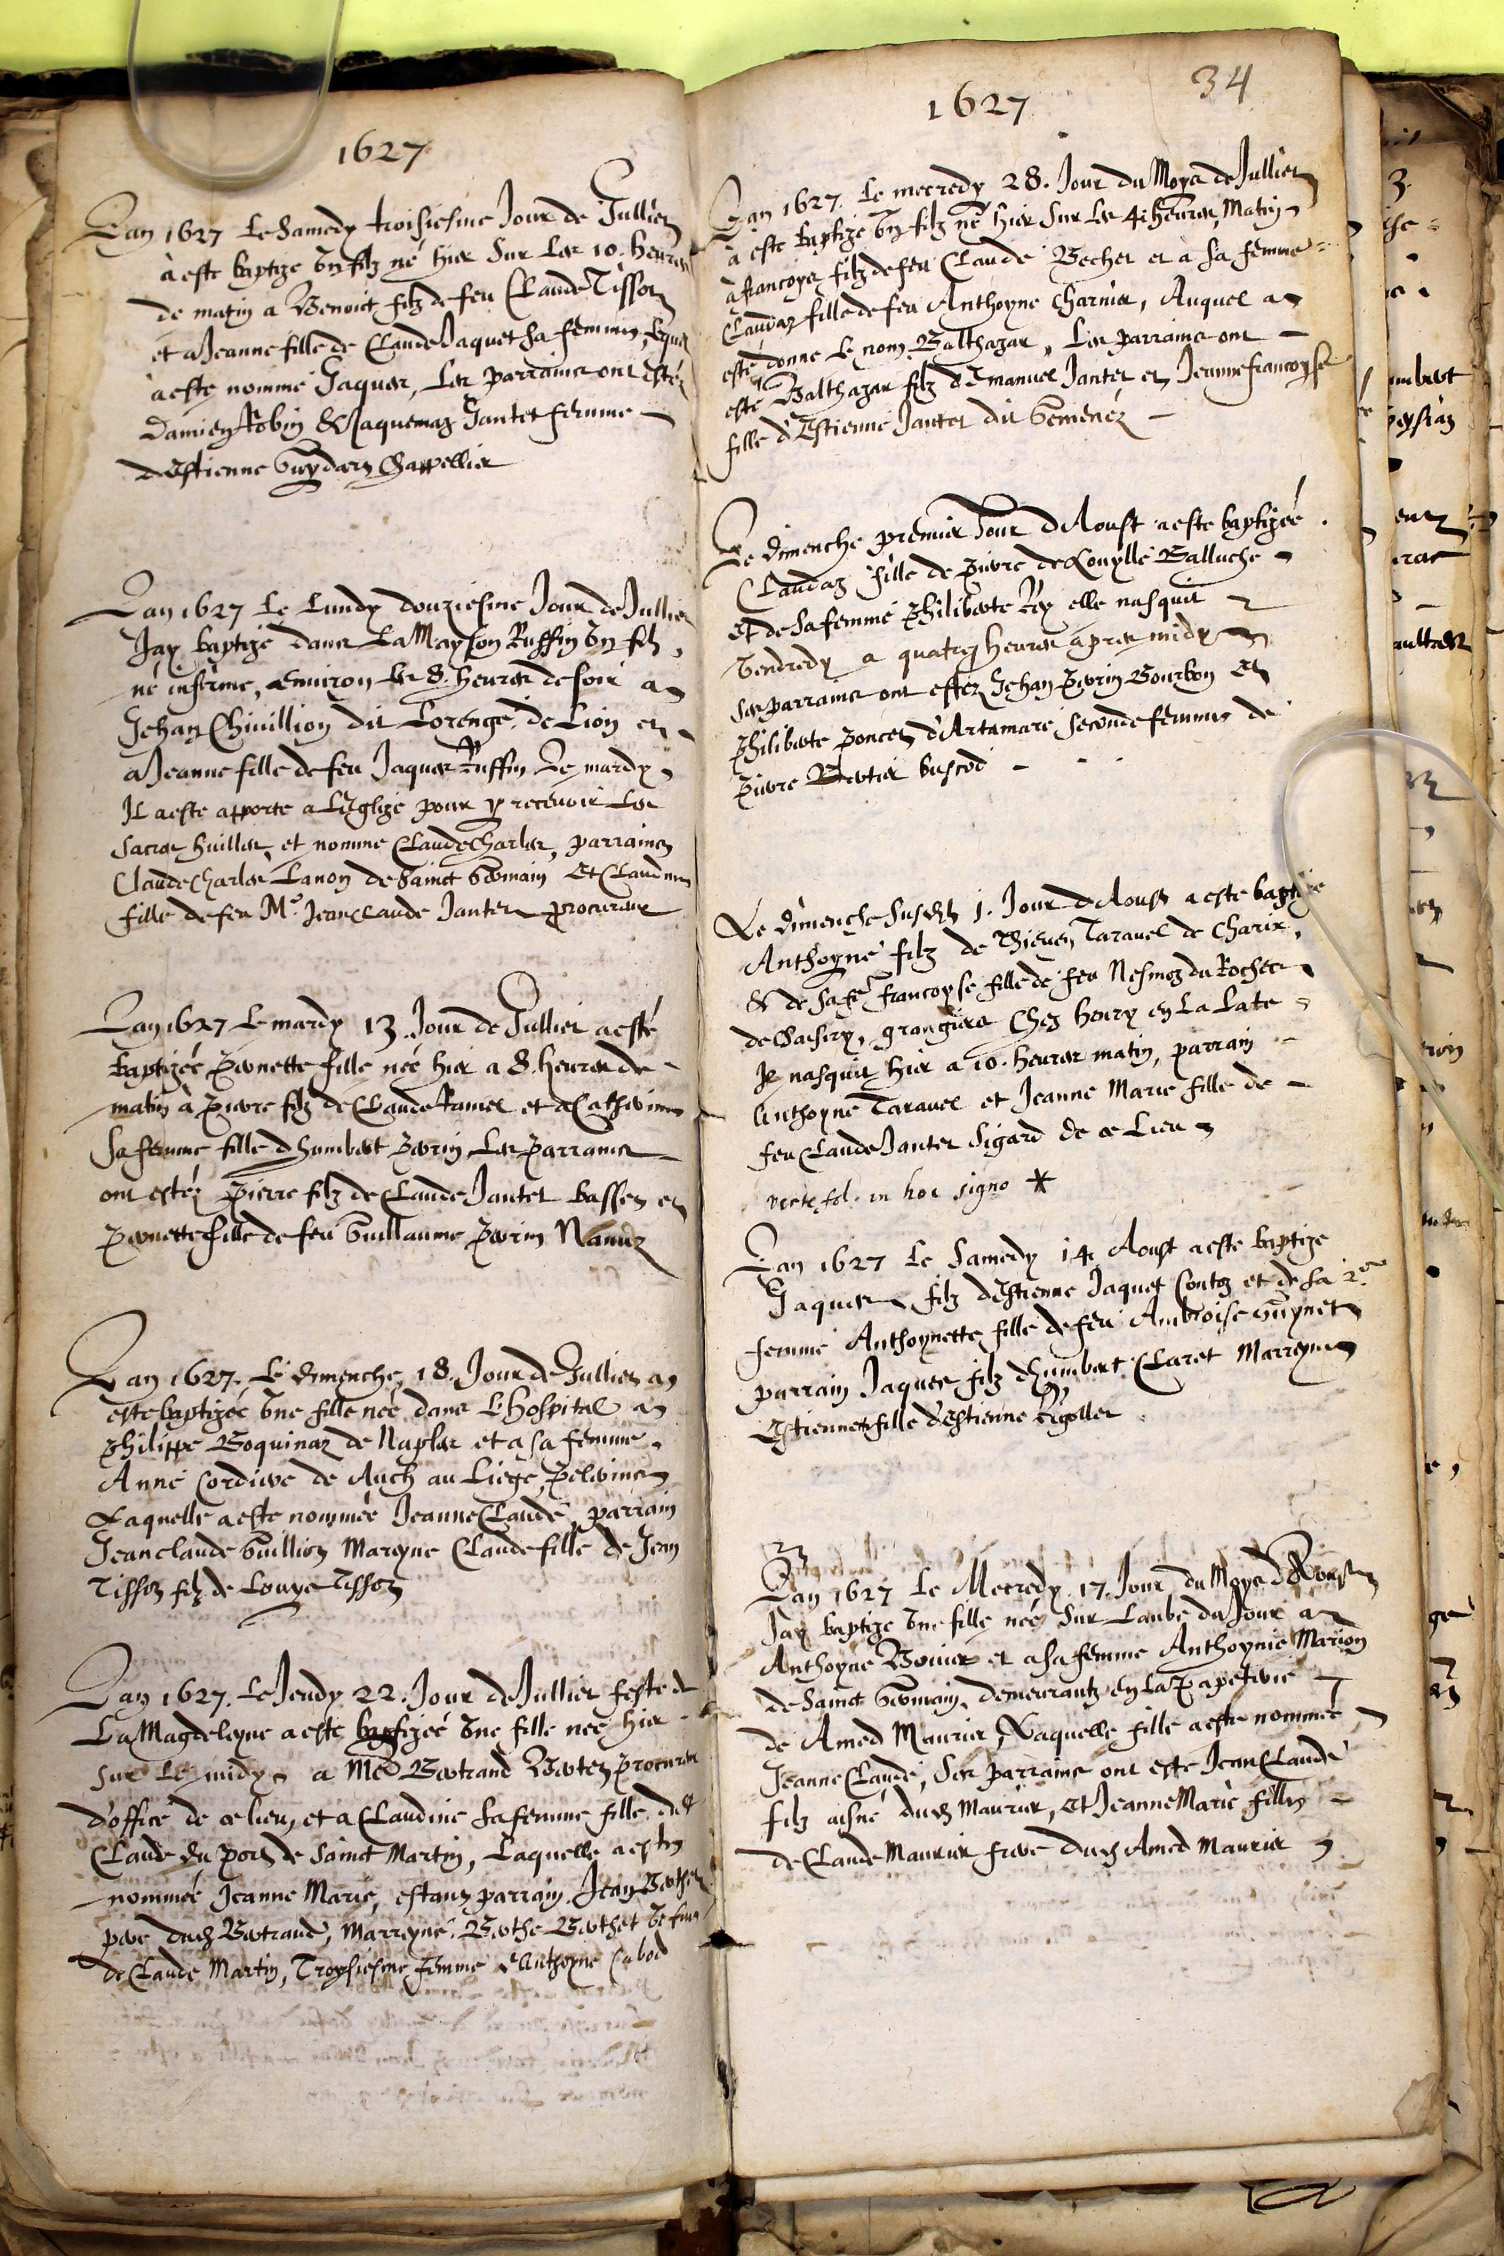 1627
Lan 1627 Le Samedy troisiesme Jour de Jullier
à esté baptize Un filz né hier Sur Les 10. heures
de matin a Benoict filz de feu Claude Tisson
et a Jeanne fille de Claude Jaquet sa femme, Lequel
à esté nommé Jaques, Les parrains ont estéz
Damien Robin & Jaquemaz Jantet femme
d'Estienne Chappellier
Lan 1627 Le Lundy douziesme Jour de Jullier
Jay baptizé dans La Mayson Ruffin Un filz
né infirme, environ les 8. heures de soir a
Jehan Chivillion dit Lorengé, de Lion et
a Jeanne fille de feu Jaques Ruffin Le mardy
Il a esté apporté a L'Eglize pour y recevoir Les
Sacres huilles, et nommé Claude Charles, parrains
Claude Charles Lanon de Sainct Germain Et Claudine
fille de feu Me Jean Claude Jantet procureur
Lan 1627 Le mardy 13. Jour de Jullier a esté
baptizéé Pernette fille néé hier a 8. heures de
matin à Pierre filz de Claude Ramel et a Catherine
Sa femme fille d'humbert Perrin, Les Parrains
ont estéz Pierre filz de Claude Jantet bassen et
Pernette fille de feu Guillaume Perrin
Lan 1627. Le dimenche 18. Jour de Jullier a
esté baptizéé Une fille néé dans L'hospital a
Philippe Boquinaz de Naples et a sa femme
Anné Cordiere de Auch au Liege, Pelerins
Laquelle a esté nomméé Jeanne Claude, parrain
Jean claude Guillion Mareyne Claude fille de Jean
Tisson filz de Louys Tisson
Lan 1627. Le Jeudy 22. Jour de Jullier feste de
La Magdeleyne a esté baptizéé Une fille néé hier
sur Le midy a Me Bertrand Bertet Procureur
d'office de ce lieu, et a Claudine Sa femme fille de
Claude du port de Sainct Martin, Laquelle a esté
nomméé Jeanne Marie, estant parrain Jean Berthet
pere dudt Bertrand, Marreyne, Berthe Berthet
de Claude Martin, Troysiesme femme d'Anthoyne Cabod
34
1627
Lan 1627. Le mecredy 28. Jour du Moys de Jullier
à esté baptizé Un filz né hier Sur Les 4 heures, Matin
à francoys filz de feu Claude Bechet et à sa femme
Claudaz fille de feu Anthoyne Charnier, Auquel a
esté donné Le nom, Balthazar, Les parrains ont
esté Balthazar filz d'Emanuel Jantet et Jeanne francoyse
fille d'Estienne Jantet dit
Le dimenche premier Jour d'Aoust a esté baptizéé
Claudaz fille de Pierre de Louyllé Balluche
Et de Sa femme Philiberte Rey elle nasquit
Vendredy a quatre heures apres midy
Ses parrains ont estéz Jehan Perrin Bourbon Et
Philiberte Poncet d'Artamare seconde femme de
Pierre Bertier
Le dimenche Susdt 1. Jour d'Aoust a esté baptizé
Anthoyne filz de Thieven Taravel de Charix,
& de Sa fe francoyse fille de feu Nesmoz du Rocher
de , grangiers Chez henry en La Late
Il nasquit hier a 10. heures matin, parrain
Anthoyne Taravel et Jeanne Marie fille de
feu Claude Jantet Sigard de ce Lieu
verte fol. in hoc signo *
Lan 1627 Le Samedy 14 Aoust a esté baptizé
Jaques filz d'Estienne Jaquet Contoz et de Sa 2e
femme Anthoynette fille de feu Ambroise Guynet
parrain Jaques filz d'humbert Claret Marreyne
Estiennette fille d'Estienne Rigollet
Lan 1627 Le Mecredy 17. Jour du Moys d'Aoust
Jay baptizé Une fille néé Sur Laube du Jour a
Anthoyne Bonier et a Sa femme Anthoynie Marion
de Sainct Germain, demeurantz en La Papeterie
de Amed Maurier, Laquelle fille a esté nomméé
Jeanne Claude, Ses parrains ont esté Jean Claude
filz aisné dudt Maurier, Et Jeanne Marie fille
de Claude Maurier frere dudt Amed Maurier